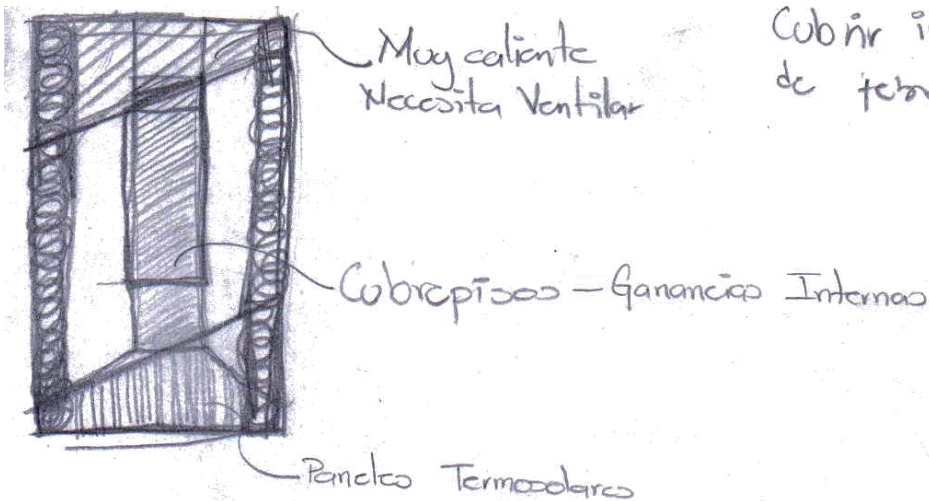 Muy caliente
Necesita Ventilar
Cubrir
de
Cubrepisos - Ganancias Internas
Paneles Termosolares